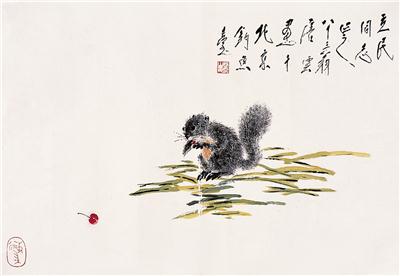 立民
同志
正之
八十三翁
唐云
画于
北京
钓鱼
台